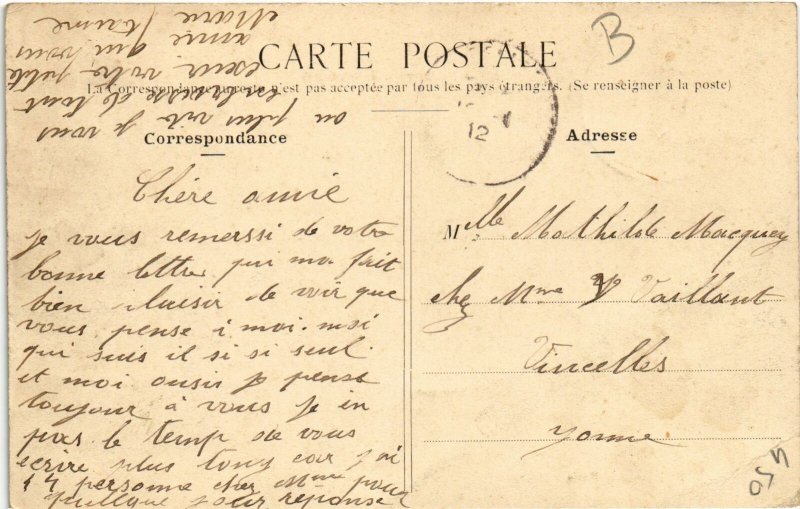 CARTE POSTALE
La Correspondance au recto n'est pas acceptée par tous les pays étrangers. (Se renseigner à la poste)
Correspondance
Chère amie
je vous remerssi de votre
bonne lettre qui ma fait
bien plaisir de voir que
vous pense i moi. moi
qui suis il si si seul
et moi ousir je pense
toujour à vous je en
pas le temp de vous
ecrire plus long car j ai
14 persone cher Mme pour
quelque jour réponse
au plus vite je vous
en laverse de tout
eseur votre petite
amie qui vous
Marie taime
Adresse
Mlle Mathilde Macquey
chez Mme V Vaillant
Vincelles
yonne
B
12
450